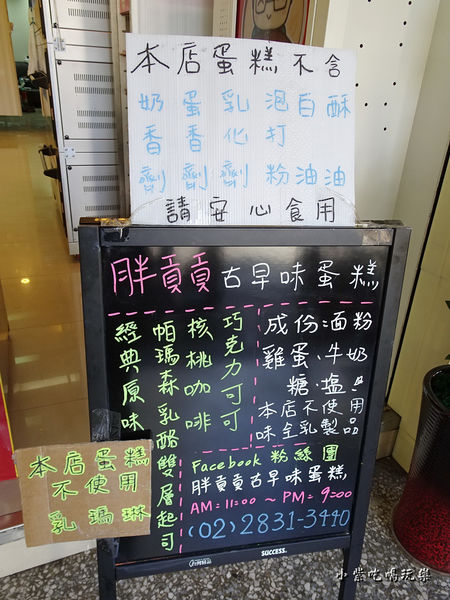 本店蛋糕不含
奶香劑
蛋香劑
乳化劑
泡打粉
白油
酥油
請安心食用
胖貢貢古早味蛋糕
巧克力可可
核桃咖啡
帕瑪森乳酪雙層起司
經典原味
成份:面粉
雞蛋、牛奶
糖、塩。
本店不使用
味全乳製品
Facebook 粉絲團
胖貢貢古早味蛋糕
AM=11=00 ～ PM=9=00
(02)2831-3440
本店蛋糕
不使用
乳瑪琳
SUCCESS.
小紫吃喝玩樂